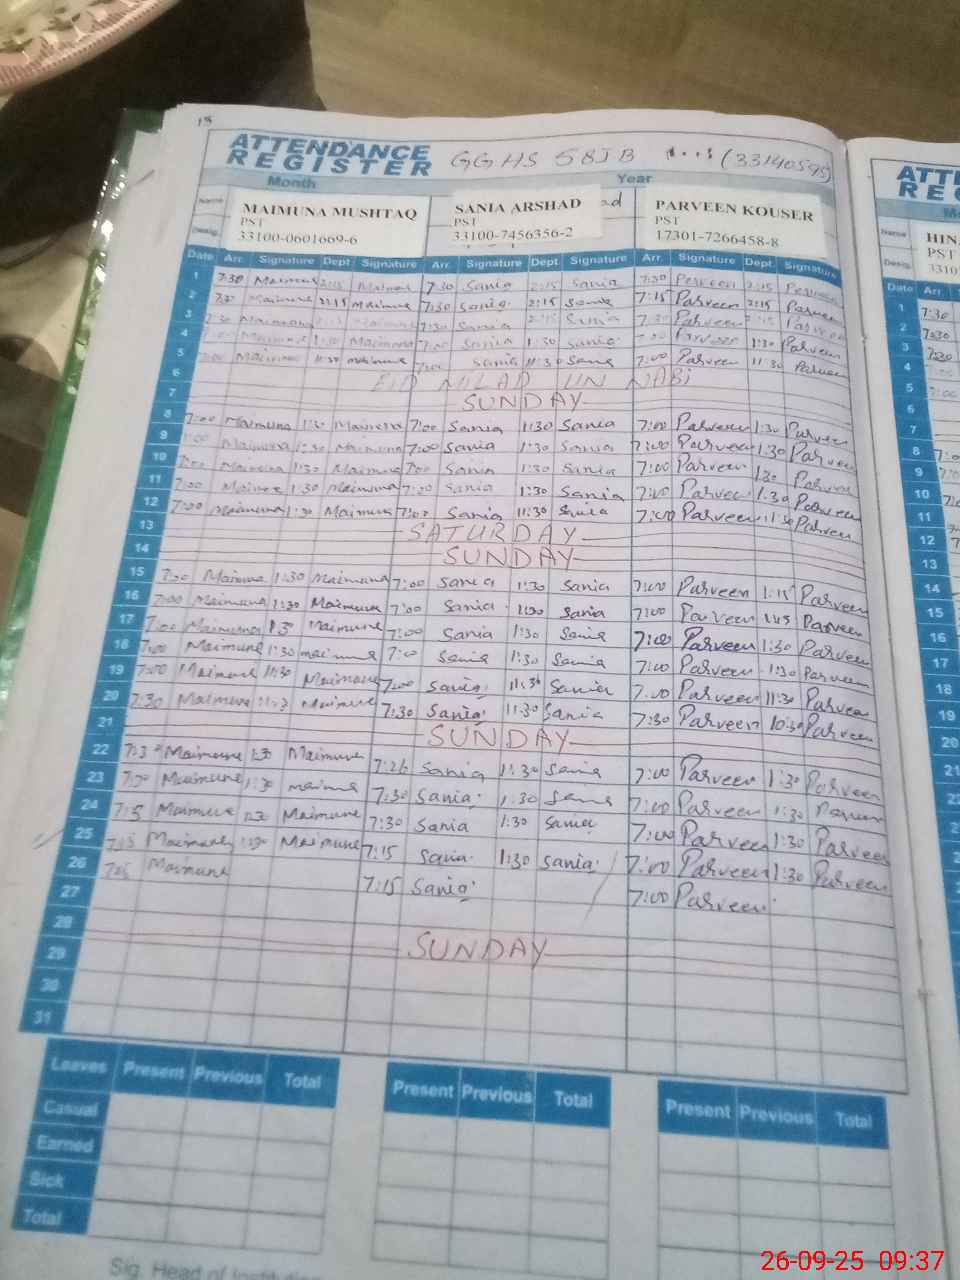 18
ATTENDANCE REGISTER GGHS 58JB (33140595)
Month Year
Name MAIMUNA MUSHTAQ SANIA ARSHAD ad PARVEEN KOUSER
Desig. PST PST PST
33100-0601669-6 33100-7456356-2 17301-7266458-8
Date Arr. Signature Dept Signature Arr. Signature Dept Signature Arr. Signature Dept. Signature
1 7:30 Maimuna 2:15 Maimuna 7:30 Sania 2:15 Sania 7:30 Parveen 2:15 Parveen
2 7:30 Maimuna 2:15 Maimuna 7:30 Sania 2:15 Sania 7:15 Parveen 2:15 Parveen
3 7:30 Maimuna 2:15 Maimuna 7:30 Sania 2:15 Sania 7:30 Parveen 2:15 Parveen
4 Maimuna 1:30 Maimuna 7:00 Sania 1:30 Sania Parveen 1:30 Parveen
5 7:00 Maimuna 11:30 Maimuna 7:00 Sania 11:30 Sania 7:00 Parveen 11:30 Parveen
6 EID MILAD UN NABI
7 SUNDAY
8 7:00 Maimuna 1:30 Maimuna 7:00 Sania 1:30 Sania 7:00 Parveen 1:30 Parveen
9 7:00 Maimuna 1:30 Maimuna 7:00 Sania 1:30 Sania 7:00 Parveen 1:30 Parveen
10 7:00 Maimuna 1:30 Maimuna 7:00 Sania 1:30 Sania 7:00 Parveen 1:30 Parveen
11 7:00 Maimuna 1:30 Maimuna 7:00 Sania 1:30 Sania 7:00 Parveen 1:30 Parveen
12 7:00 Maimuna 11:30 Maimuna 7:00 Sania 11:30 Sania 7:00 Parveen 11:30 Parveen
13 SATURDAY
14 SUNDAY
15 7:00 Maimuna 1:30 Maimuna 7:00 Sania 1:30 Sania 7:00 Parveen 1:15 Parveen
16 7:00 Maimuna 1:30 Maimuna 7:00 Sania 1:30 Sania 7:00 Parveen 1:45 Parveen
17 7:00 Maimuna 1:3 Maimuna 7:00 Sania 1:30 Sania 7:00 Parveen 1:30 Parveen
18 7:00 Maimuna 1:30 maimuna 7:0 Sania 1:30 Sania 7:00 Parveen 1:30 Parveen
19 7:00 Maimuna 11:30 Maimuna 7:00 Sania 11:30 Sania 7:00 Parveen 11:30 Parveen
20 7:30 Maimuna 11:3 Maimuna 7:30 Sania 11:30 Sania 7:30 Parveen 10:30 Parveen
21 SUNDAY
22 7:3 Maimuna 1:30 Maimuna 7:26 Sania 1:30 Sania 7:00 Parveen 1:30 Parveen
23 7:30 Maimuna 1:30 maimuna 7:30 Sania 1:30 Sania 7:00 Parveen 1:30 Parveen
24 7:15 Maimuna 1:30 Maimuna 7:30 Sania 1:30 Sania 7:00 Parveen 1:30 Parveen
25 7:15 Maimuna 1:30 Maimuna 7:15 Sania 1:30 Sania 7:00 Parveen 1:30 Parveen
26 7:15 Maimuna 7:15 Sania 7:00 Parveen
27
28 SUNDAY
29
30
31
Leaves Present Previous Total Present Previous Total Present Previous Total
Casual
Earned
Sick
Total
Sig. Head of
ATT
RE
Name HIN
Desig. 3310
Date Arr.
1 7:30
2 7:30
3 7:30
4
5 7:00
6
7
8
9
10
11
12
13
14
15
16
17
18
19
20
21
26-09-25 09:37